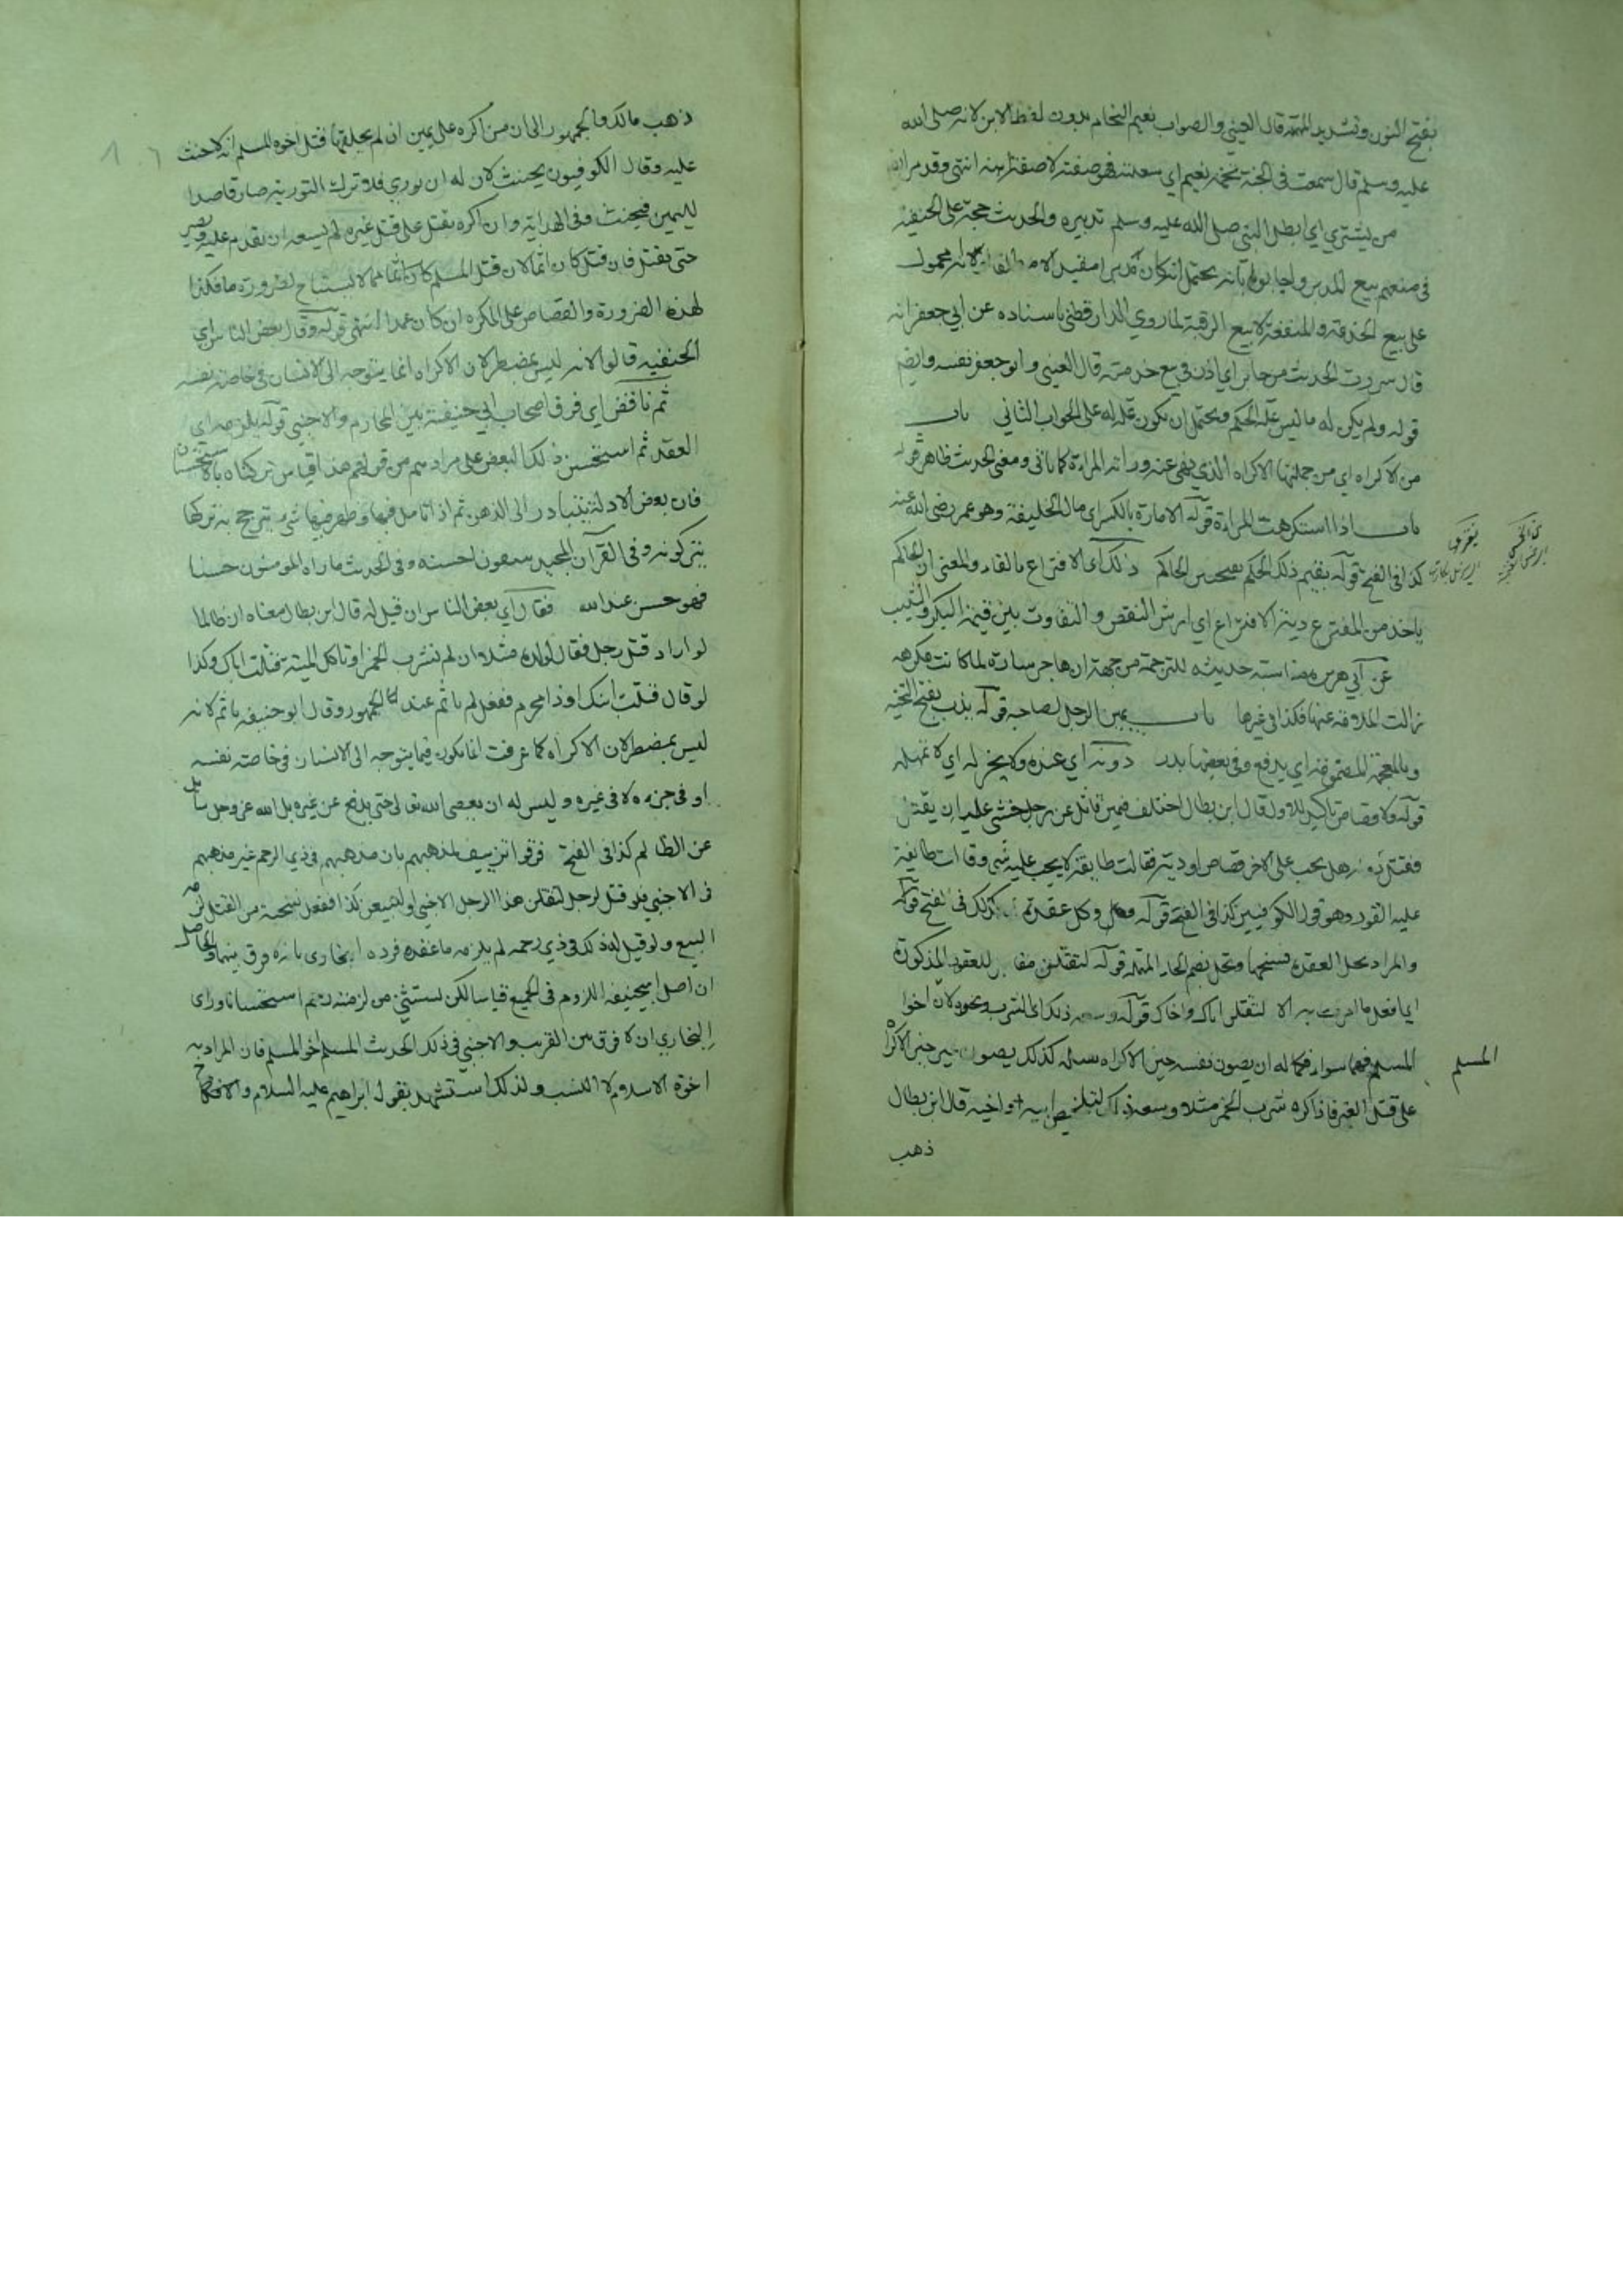 بفتح النون وتشديد المهملة قال العيني والصواب نعيم النحام بدون لفظ الابن لانه صلى الله
عليه وسلم قال سمعت في الجنة نحمة نعيم اي سعلته فهو صفته لا صفة ابنه انتهى وقد مر
من يشتري اي ابطل النبي صلى الله عليه وسلم تدبيره والحديث حجة على الحنفية
في منعهم بيع المدبر واجابوا بانه يحتمل انه كان مدبرا مقيدا لانه محمول
على بيع الخدمة والمنفعة لا بيع الرقبة لما روي الدارقطني باسناده عن ابي جعفر انه
قال الحديث من جابر اي اذن في بيع خدمته قال العيني وابو جعفر نفسه وايضا
قوله ولم يكن له مال ليس علة الحكم ويحتمل ان يكون علة له على الجواب الثاني باب
من الاكراه اي من جملتها الاكراه الذي نهى عنه وراثة المراءة كما ياتي ومعنى الحديث ظاهر قوله
باب اذا استكرهت المراءة قوله الامارة بالكسر اي مال الخليفة وهو عمر رضي الله عنه
كذا في الفتح قوله يقيم ذلك الحكم الحاكم ذلك اي الافتراع بالفاء والمعنى ان الحاكم
ياخذ من المفترع دية الافتراع اي ارش النقص والتفاوت بين قيمة البكر والثيب
عن ابي هريرة مناسبة حديثه للترجمة من جهة ان هاجر سارة لما كانت مكرهة
زالت الملامة عنها فكذا في غيرها باب يمين الرجل لصاحبه قوله يذب بفتح التحتية
وبالمعجمة المضمومة اي يدفع وفي بعضها يدر دونه اي عنده ولا يخذله اي لا يهمله
قوله ولا قصاص تاكيد للاول قال ابن بطال اختلف فيمن قاتل عن رجل خشي عليه ان يقتل
فقتل دونه هل يجب على الاخر قصاص او دية فقالت طايفة لا يجب عليه شي وقالت طايفة
عليه القود وهو قول الكوفيين كذا في الفتح قوله وكل عقدة كذلك في الفتح قوله
والمراد بحل العقدة فسخها وتحل بضم الحاء المهملة قوله لتقتلن للعقود المذكورة
اي افعل ما امرت به الا لنقتلن اباك واخاك قوله وسعه ذلك اي الشرب ونحوه لان اخوا
المسلم فهما سواء فكما له ان يصون نفسه حين الاكراه كذلك يصون غيره حين الاكراه
المسلم
على قتل الغير فاذا اكره شرب الخمر مثلا وسعه ذلك لتخليص ابيه او اخيه قال ابن بطال
ذهب
ذهب مالك والجمهور الى ان من اكره على يمين ان لم يحلفها قتل اخوه المسلم انه لا حنث
عليه وقال الكوفيون يحنث لان له ان يوري فلو ترك التورية صار قاصدا
لليمين فيحنث وفي الهداية وان اكره بقتل على قتل غيره لم يسعه ان يقدم عليه ويصبر
حتى يقتل فان قتل كان اثما لان قتل المسلم مما لا يستباح لضرورة ما فكذا
لهذه الضرورة والقصاص على المكره ان كان عمدا انتهى قوله وقال بعض الناس اي
الحنفيه قالوا لانه ليس بمضطر لان الاكراه انما يتوجه الى الانسان في خاصة نفسه
ثم ناقض اي فرق اصحاب ابي حنيفة بين المحارم والاجنبي قوله يلزمه اي
العقد ثم استحسن ذلك البعض على مراد من قولهم هذا قياس تركناه بالاستحسان
فان بعض الادلة يتبادر الى الذهن ثم اذا تامل فيها وظهر فيها شيء يترجح به تركها
يتركونه وفي القرآن المجيد يتبعون احسنه وفي الحديث ما راه المومنون حسنا
فهو حسن عند الله فقال اي بعض الناس ان قيل له قال ابن بطال معناه ان ظالما
لو اراد قتل رجل فقال لولده مثلا ان لم تشرب الخمر او تاكل الميتة قتلت اباك وكذا
لو قال قتلت ابنك او ذا محرم ففعل لم ياثم عند الجمهور وقال ابو حنيفه ياثم لانه
ليس بمضطر لان الاكراه كما عرفت انما يكون فيما يتوجه الى الانسان في خاصة نفسه
او في جزءه لا في غيره وليس له ان يعصي الله تعالى حتى يدفع عن غيره بل الله عز وجل سائل
عن الظالم كذا في الفتح فرقوا تزييف لمذهبهم بان مذهبهم في ذي الرحم غير مذهبهم
في الاجنبي فلو قيل لرجل لتقتلن هذا الرجل الاجنبي او لتبيعن كذا ففعل لينجيه من القتل لزمه
البيع ولو قيل له ذلك في ذي رحمه لم يلزمه ما عقده فرده البخاري بانه فرق بينهما والحاصل
ان اصل ابيحنيفه اللزوم في الجميع قياسا لكن يستثنى من له منه رحم استحسانا وراى
البخاري ان لا فرق بين القريب والاجنبي في ذلك الحديث المسلم اخو المسلم فان المراد به
اخوة الاسلام لا النسب ولذلك استشهد بقول ابراهيم عليه السلام والا فنكاح